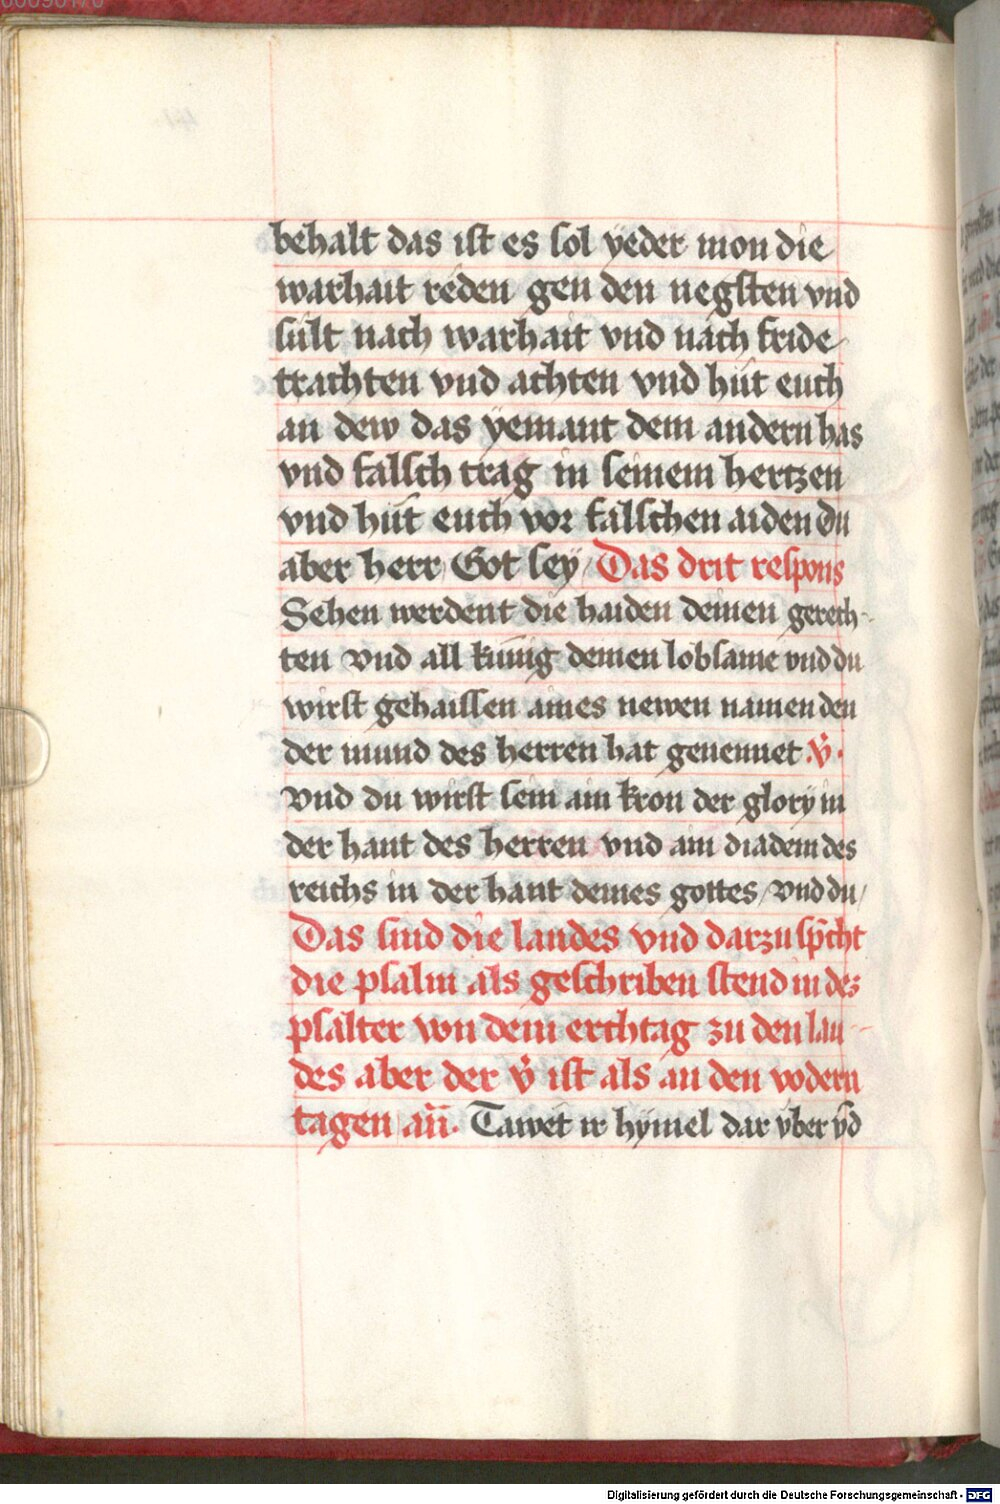 behalt das ist es sol yeder mon die
warhait reden gen den negsten vnd
sült nach warhait vnd nach fride
trachten vnd achten vnd hüt euch
an dew das yemant dem andern has
vnd falsch trag in seinem hertzen
vnd hüt euch vor falschen aiden Du
aber herr Got sey Das drit respons
Sehen werdent die haiden deinen gerech-
ten vnd all künig deinen lobsame vnd du
wirst gehaissen aines newen namen den
der mund des herren hat genennet v̇.
Vnd du wirst sein ain kron der glory in
der hant des herren vnd ain diadem des
reichs in der hant deines gottes / vnd du /
Das sind die landes vnd darzu sp̄cht
die psalm als geschriben stend in dez
psalter von dem erchtag zu den lau-
des aber der v̇ ist als an den vodern
tagen an̄. Tawet ir hymel dar vber v̄d
Digitalisierung gefördert durch die Deutsche Forschungsgemeinschaft - DFG